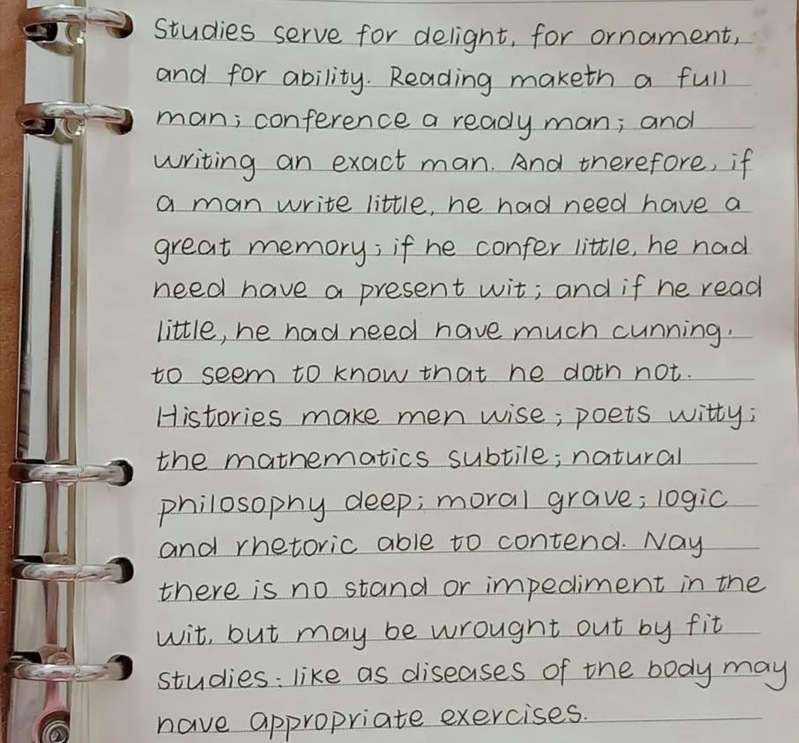 Studies serve for delight, for ornament,
and for ability. Reading maketh a full
man; conference a ready man; and
writing an exact man. And therefore, if
a man write little, he had need have a
great memory; if he confer little, he had
need have a present wit; and if he read
little, he had need have much cunning,
to seem to know that he doth not.
Histories make men wise; poets witty;
the mathematics subtile; natural
philosophy deep; moral grave; logic
and rhetoric able to contend. Nay
there is no stand or impediment in the
wit, but may be wrought out by fit
studies: like as diseases of the body may
have appropriate exercises.